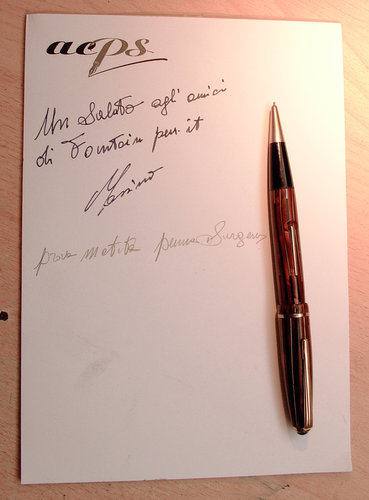 acps
Un saluto agli amici
di Fountain pen.it
Massimo
prova matita penna Jurgens